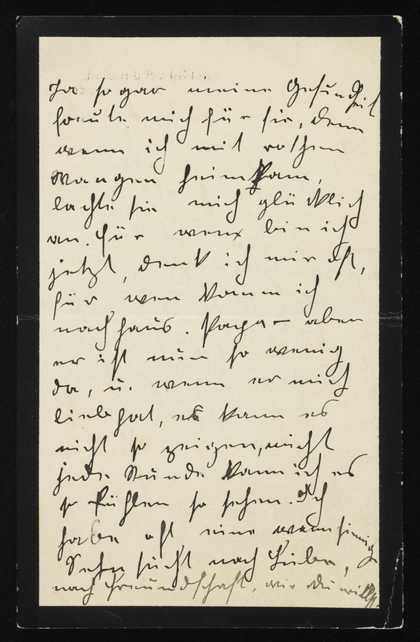 Ja sogar meine Gesundheit
freute mich für sie, denn
wenn ich mit rothen
Wangen heimkam,
lachte sie mich glücklich
an. Für wen bin ich
jetzt, denk ich mir oft,
für wen komm ich
nachhaus. Papa – aber
er ist nun so wenig
da, u. wenn er mich
liebhat, es kann es
nicht so zeigen, nicht
jede Stunde kann ich es
so fühlen so sehen. Ich
habe oft eine wahnsinnige
Sehnsucht nach Liebe,
nach Freundschaft, wie du willst